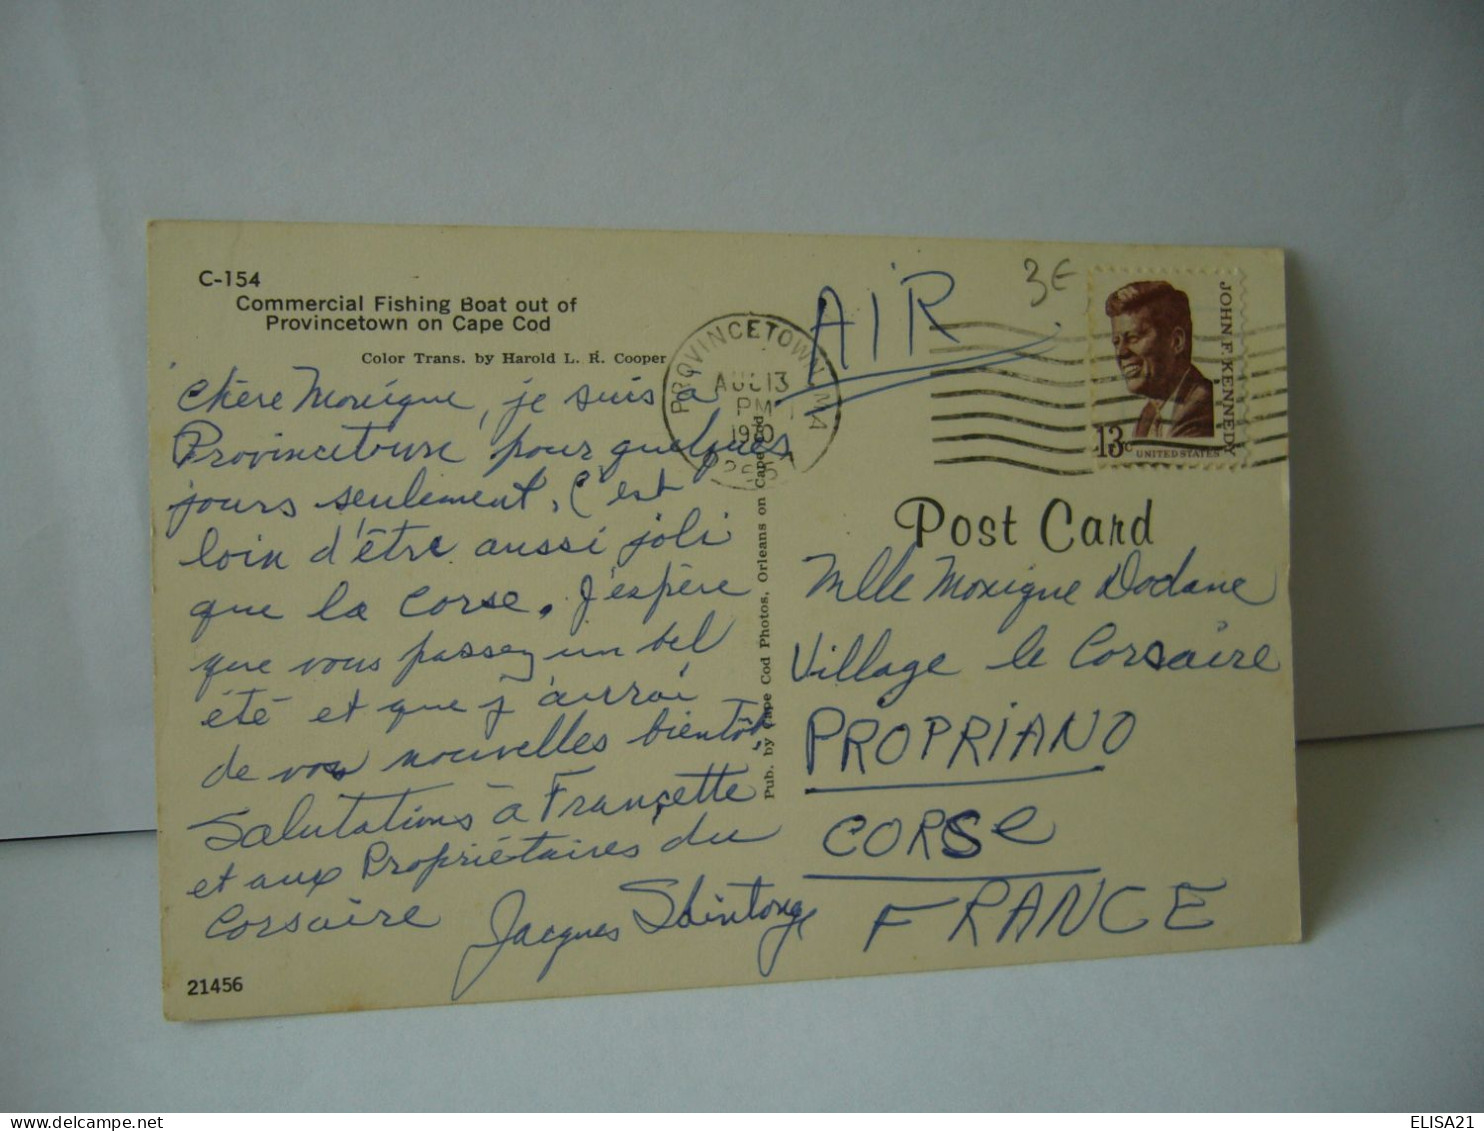 C-154
Commercial Fishing Boat out of
Provincetown on Cape Cod
Color Trans. by Harold L. R. Cooper
Chère Monique, je suis à
Provincetown pour quelques
jours seulement, C'est
loin d'être aussi joli
que la Corse. J'espère
que vous passez un bel
été et que j'aurrai
de vos nouvelles bientôt.
Salutations à Françette
et aux Propriétaires du
Corsaire
Jacques
21456
Pub. by Cape Cod Photos, Orleans on Cape Cod
PROVINCETOWN, MA
AUG 13
PM
1970
AIR
3€
JOHN F. KENNEDY
13c
UNITED STATES
Post Card
Mlle Monique Dodane
Village le Corsaire
PROPRIANO
CORSE
FRANCE
ELISA21